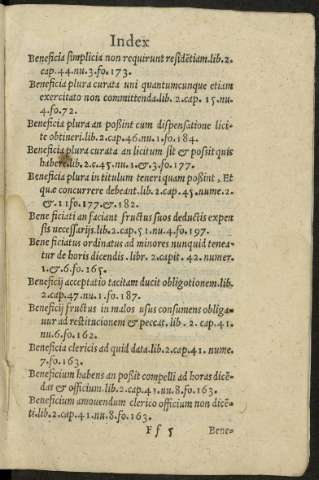 Index
Beneficia simplicia non requirunt residētiam.lib.2.
cap.44.nu.3.fo.173.
Beneficia plura curata uni quantumcunque etiam
exercitato non committenda.lib.2.cap.15.nu.
4.fo.72.
Beneficia plura an poßint cum dispensatione lici-
te obtineri.lib.2.cap.46.nu.1.fo.184.
Beneficia plura curata an licitum sit & possit quis
habere.li.2.c.45.nu.1.&.3.fo.177.
Beneficia plura in titulum teneri quam poßint, Et
quæ concurrere debeant.lib.2.cap.45.nume.2.
&.11fo.177.&.182.
Bene ficiati an faciant fructus suos deductis expen
sis necessarijs.lib.2.cap.51.nu.4.fo.197.
Bene ficiatus ordinatus ad minores nunquid tenea-
tur de horis dicendis.libr.2.capit.42.numer.
1.&.6.fo.165.
Beneficij acceptatio tacitam ducit obligationem.lib.
2.cap.47.nu.1.fo.187.
Beneficij fructus in malos usus consumens obliga-
uur ad restitucionem & peccat.lib.2.cap.41.
nu.6.fo.162.
Beneficia clericis ad quid data.lib.2.cap.41.nume.
7.fo.163.
Beneficium habens an poßit compelli ad horas dicē-
das & officium.lib.2.cap.41.nu.8.fo.163.
Beneficium amouendum clerico officium non dicē-
ti.lib.2.cap.41.nu.8.fo.163.
Ff 5 Bene-